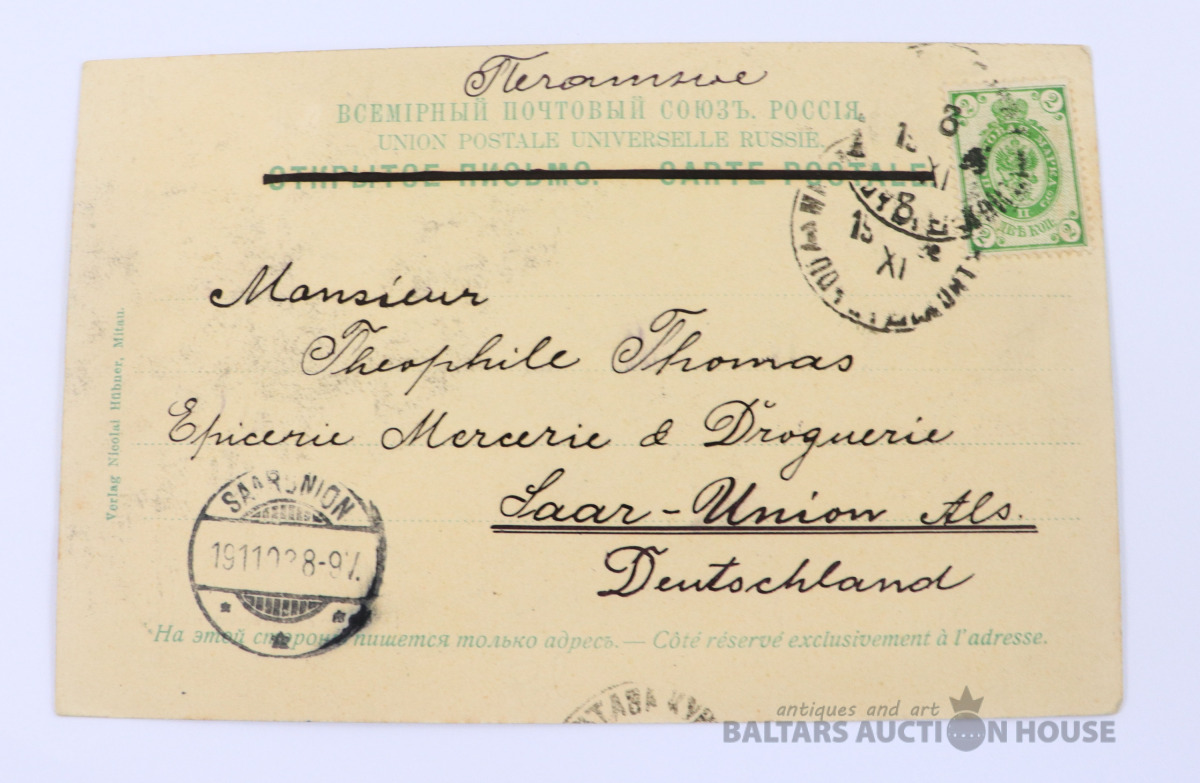 Печатное
ВСЕМІРНЫЙ ПОЧТОВЫЙ СОЮЗЪ. РОССІЯ.
UNION POSTALE UNIVERSELLE RUSSIE.
ОТКРЫТОЕ ПИСЬМО. CARTE POSTALE
2 2
ДВѢ КОП.
2 2
15 XI
8
15 XI
8
Monsieur
Theophile Thomas
Epicerie Mercerie & Droguerie
Saar-Union Als.
Deutschland
Verlag Nicolai Hübner, Mitau.
SAARUNION
8-9V.
На этой сторонѣ пишется только адресъ. — Côté réservé exclusivement à l'adresse.
МИТАВА КУР
antiques and art
BALTARS AUCTION HOUSE